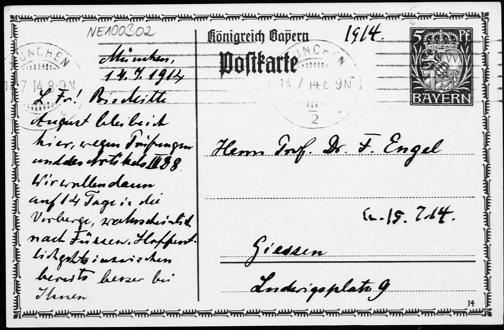 NE100302
München,
14.7.1914
L. Fr! Bis Mitte
August bleibe ich
hier, wegen Prüfungen
und des Artikels III B 8.
Wir wollen dann
auf 14 Tage in die
Vorberge, wahrscheinlich
nach Füssen. Hoffent-
lich geht es inzwischen
bereits besser bei
Ihnen
Königreich Bayern
Postkarte
1914.
MÜNCHEN
14 7 14 8-9 N
MÜNCHEN
14 7 14 8-9 N
2
5 Pf
BAYERN
Herrn Prof. Dr. F. Engel
15.7.14.
Giessen
Ludwigsplatz 9
14